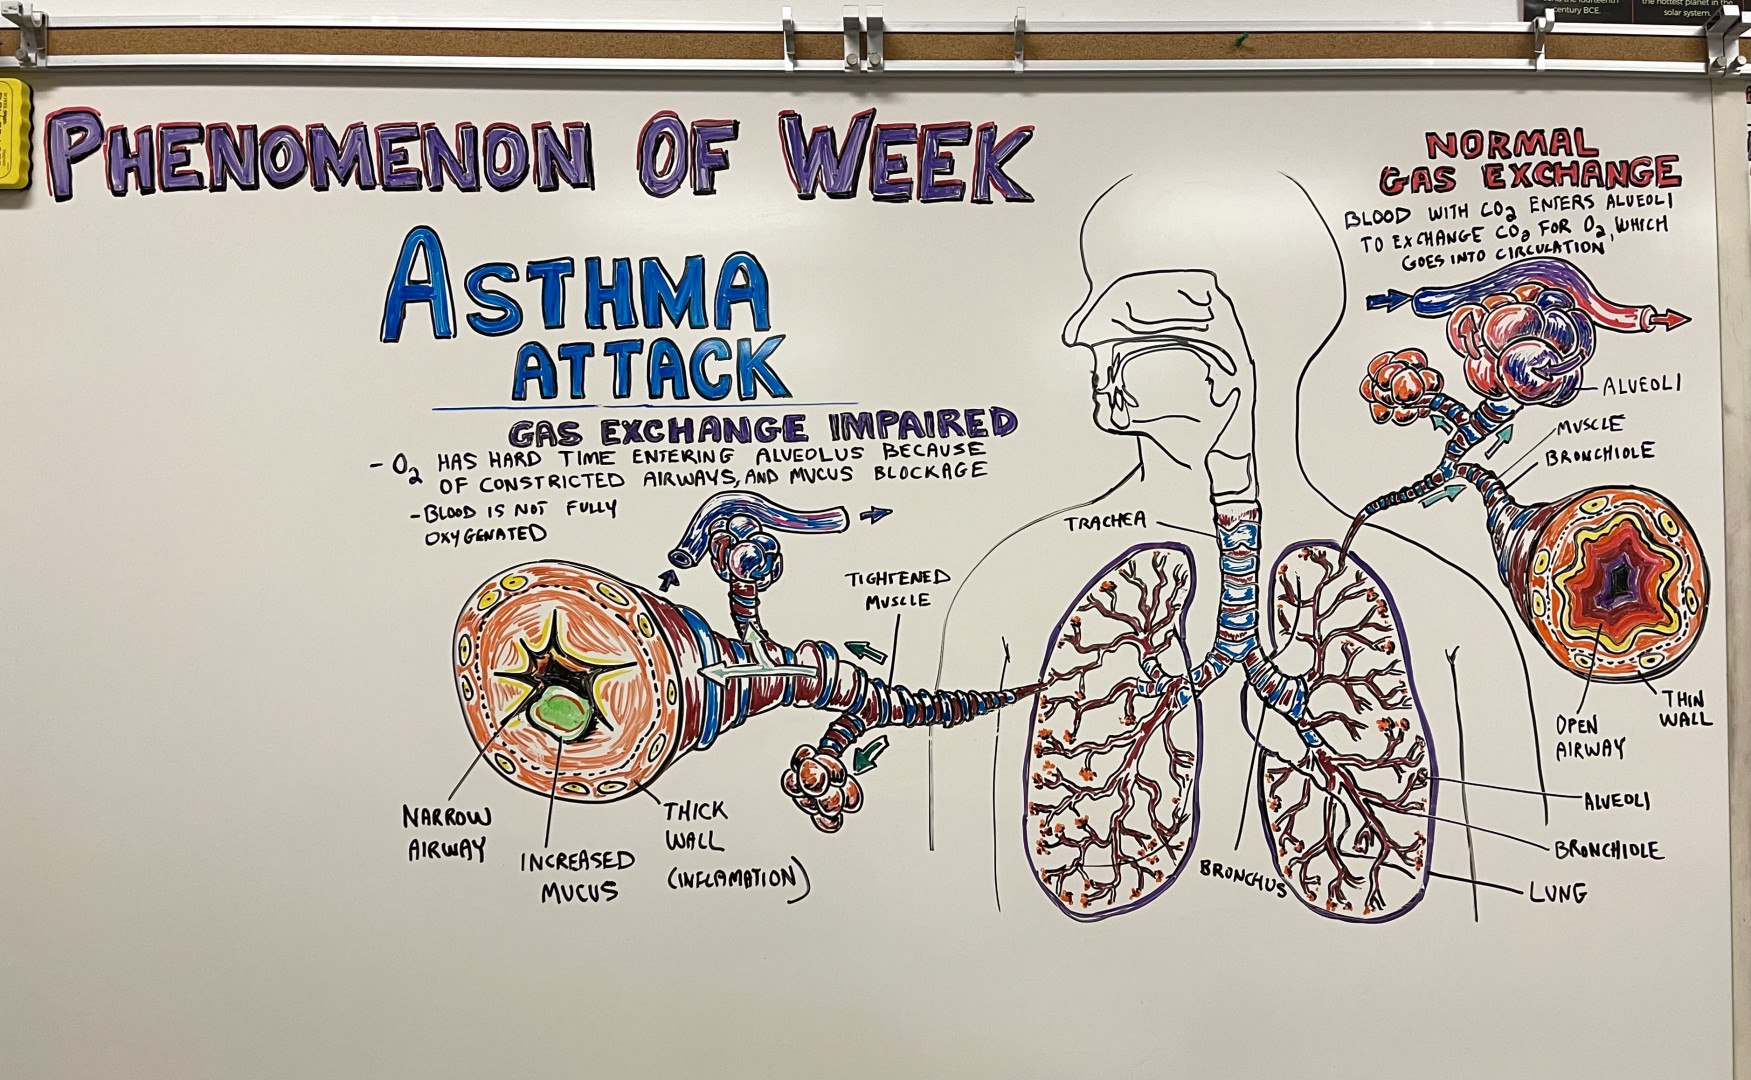 century BCE.
the hottest planet in the
solar system.
PHENOMENON OF WEEK
ASTHMA
ATTACK
GAS EXCHANGE IMPAIRED
- O2 HAS HARD TIME ENTERING ALVEOLUS BECAUSE
OF CONSTRICTED AIRWAYS, AND MUCUS BLOCKAGE
- BLOOD IS NOT FULLY
OXYGENATED
TIGHTENED
MUSCLE
NARROW
AIRWAY
INCREASED
MUCUS
THICK
WALL
(INFLAMATION)
TRACHEA
BRONCHUS
NORMAL
GAS EXCHANGE
BLOOD WITH CO2 ENTERS ALVEOLI
TO EXCHANGE CO2 FOR O2, WHICH
GOES INTO CIRCULATION
ALVEOLI
MUSCLE
BRONCHIOLE
THIN
WALL
OPEN
AIRWAY
ALVEOLI
BRONCHIOLE
LUNG